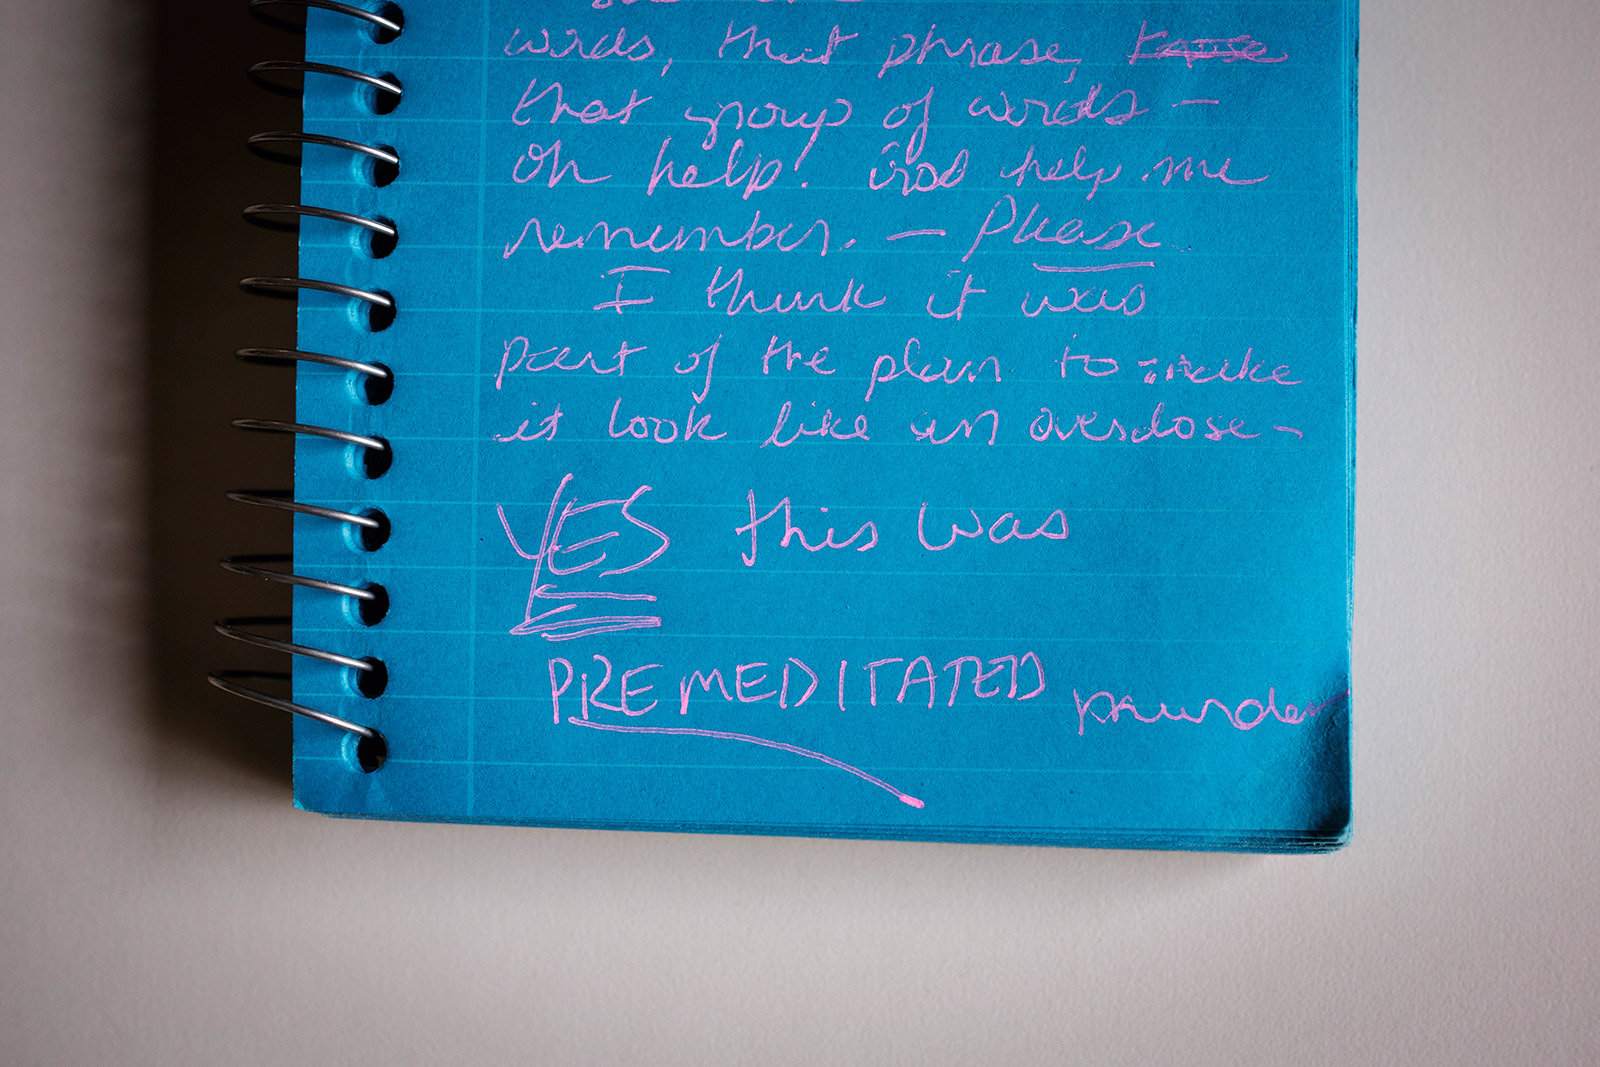 words, that phrase,
that group of words —
oh help! God help me
remember. — Please
I think it was
part of the plan to make
it look like an overdose —
YES this was
PREMEDITATED murder